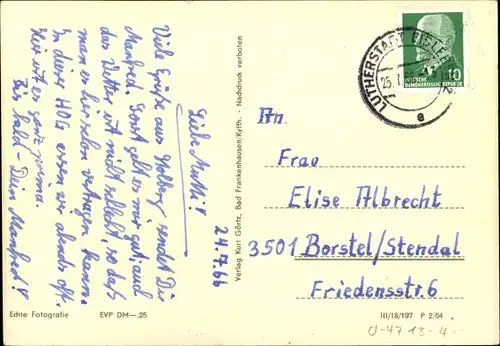 24.7.66
Liebe Mutti!
Viele Grüße aus Stolberg sendet Dir
Manfred. Sonst geht es mir gut, auch
das Wetter ist nicht schlecht, so daß
man es hier schon vertragen kann.
In dieser HOG essen wir abends oft.
Hier ist es ganz prima.
Bis bald - Dein Manfred!
Echte Fotografie EVP DM —,25
Verlag Kurt Görtz, Bad Frankenhausen/Kyffh. - Nachdruck verboten
LUTHERSTADT EISLEBEN
25.7.
e
10
DEUTSCHE
DEMOKRATISCHE REPUBLIK
An
Frau
Elise Albrecht
3501 Borstel/Stendal
Friedensstr. 6
III/18/197 P 2/64
U-4713-4